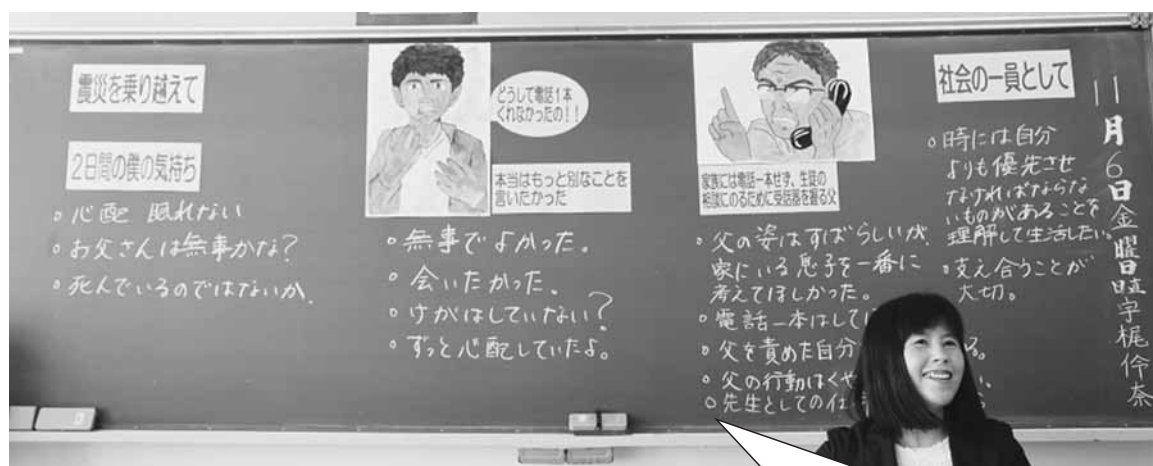 震災を乗り越えて
2日間の僕の気持ち
○心配 眠れない
○お父さんは無事かな?
○死んでいるのではないか。
どうして電話1本
くれなかったの!!
本当はもっと別なことを
言いたかった
○無事でよかった。
○会いたかった。
○けがはしていない?
○ずっと心配していたよ。
家族には電話一本せず、生徒の
相談にのるために受話器を握る父
○父の姿はすばらしいが、
家にいる息子を一番に
考えてほしかった。
○電話一本はして
○父を責めた自分
る。
○父の行動はくや
○先生としての仕
社会の一員として
○時には自分
よりも優先させ
なければならな
いものがあることを
理解して生活したい。
○支え合うことが
大切。
11月6日金曜日